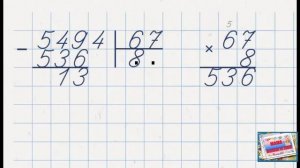 5
- 5494 | 67 × 67
536 8. . 8
13 536